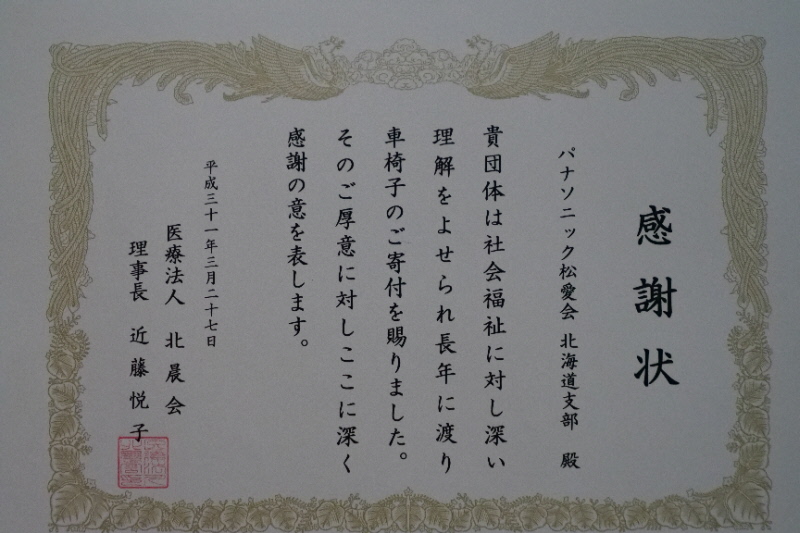 感謝状
パナソニック松愛会 北海道支部 殿
貴団体は社会福祉に対し深い
理解をよせられ長年に渡り
車椅子のご寄付を賜りました。
そのご厚意に対しここに深く
感謝の意を表します。
平成三十一年三月二十七日
医療法人 北晨会
理事長 近藤悦子